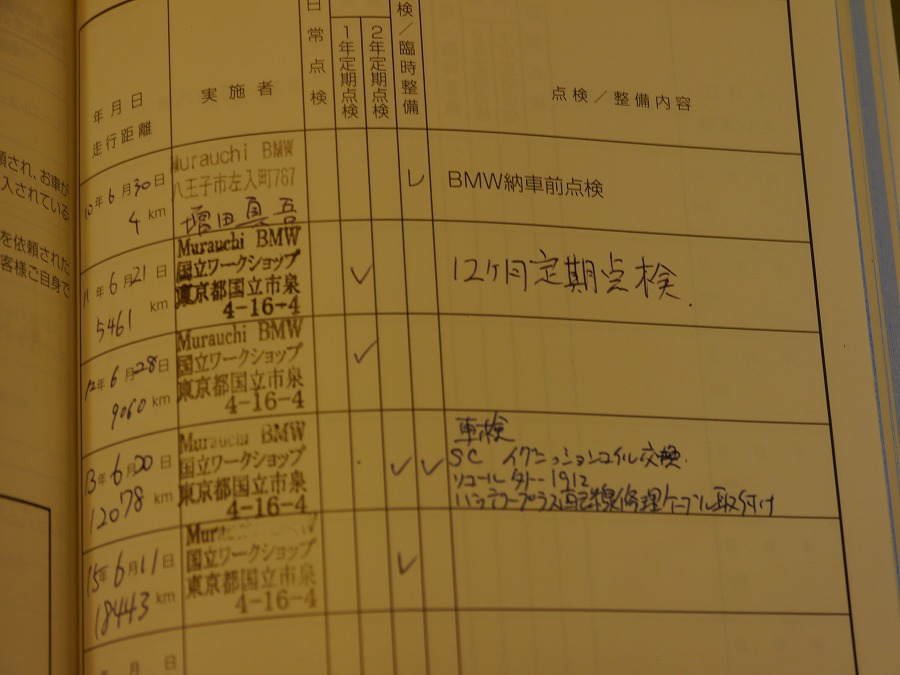 頼され、お車が
入されている
を依頼された
客様ご自身で
年月日
走行距離
実施者
日常点検
1年定期点検
2年定期点検
検/臨時整備
点検/整備内容
10年6月30日
4 km
Murauchi BMW
八王子市左入町787
増田真吾
BMW納車前点検
11年6月21日
5461 km
Murauchi BMW
国立ワークショップ
東京都国立市泉
4-16-4
12ヶ月定期点検.
12年6月28日
9060 km
Murauchi BMW
国立ワークショップ
東京都国立市泉
4-16-4
13年6月20日
12078 km
Murauchi BMW
国立ワークショップ
東京都国立市泉
4-16-4
車検
SC イグニッションコイル交換.
リコール 外-1912
バッテリープラス配線修理ケーブル取り付け
15年6月11日
18443 km
Mura
国立ワークショップ
東京都国立市泉
4-16-4
年月日